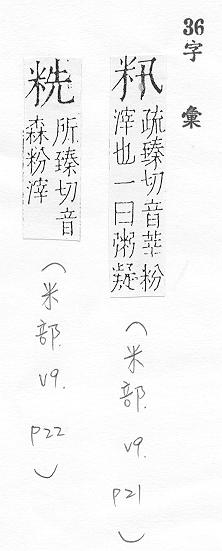 36字彙
籸
疏臻切音莘粉
滓也一曰粥凝
(米部.v9.p21)
粩
所臻切音
森粉滓
(米部.v9.p22)